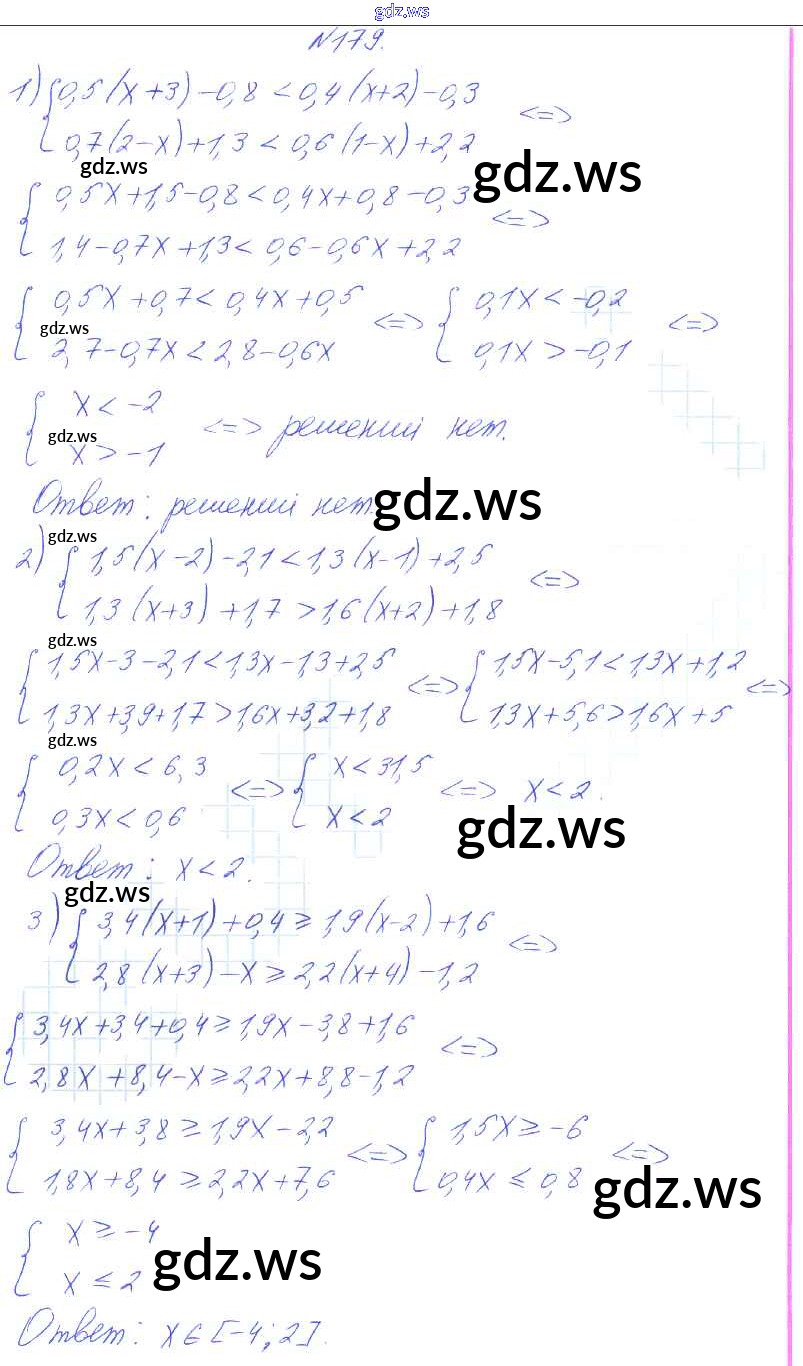 gdz.ws
N179.
1) { 0,5(x+3)-0,8<0,4(x+2)-0,3
0,7(2-x)+1,3<0,6(1-x)+2,2 <=>
gdz.ws gdz.ws
{ 0,5x+1,5-0,8<0,4x+0,8-0,3
1,4-0,7x+1,3<0,6-0,6x+2,2 <=>
{ 0,5x+0,7<0,4x+0,5 <=> { 0,1x<-0,2 <=>
gdz.ws
2,7-0,7x<2,8-0,6x 0,1x>-0,1
{ x<-2 <=> решений нет.
gdz.ws
x>-1
Ответ: решений нет. gdz.ws
gdz.ws
2) { 1,5(x-2)-2,1<1,3(x-1)+2,5
1,3(x+3)+1,7>1,6(x+2)+1,8 <=>
gdz.ws
{ 1,5x-3-2,1<1,3x-1,3+2,5 <=> { 1,5x-5,1<1,3x+1,2 <=>
1,3x+3,9+1,7>1,6x+3,2+1,8 1,3x+5,6>1,6x+5
gdz.ws
{ 0,2x<6,3 <=> { x<31,5 <=> x<2.
0,3x<0,6 x<2 gdz.ws
Ответ: x<2.
gdz.ws
3) { 3,4(x+1)+0,4≥1,9(x-2)+1,6
2,8(x+3)-x≥2,2(x+4)-1,2 <=>
{ 3,4x+3,4+0,4≥1,9x-3,8+1,6
2,8x+8,4-x≥2,2x+8,8-1,2 <=>
{ 3,4x+3,8≥1,9x-2,2 <=> { 1,5x≥-6 <=>
1,8x+8,4≥2,2x+7,6 0,4x≤0,8 gdz.ws
{ x≥-4
x≤2 gdz.ws
Ответ: x∈[-4;2].